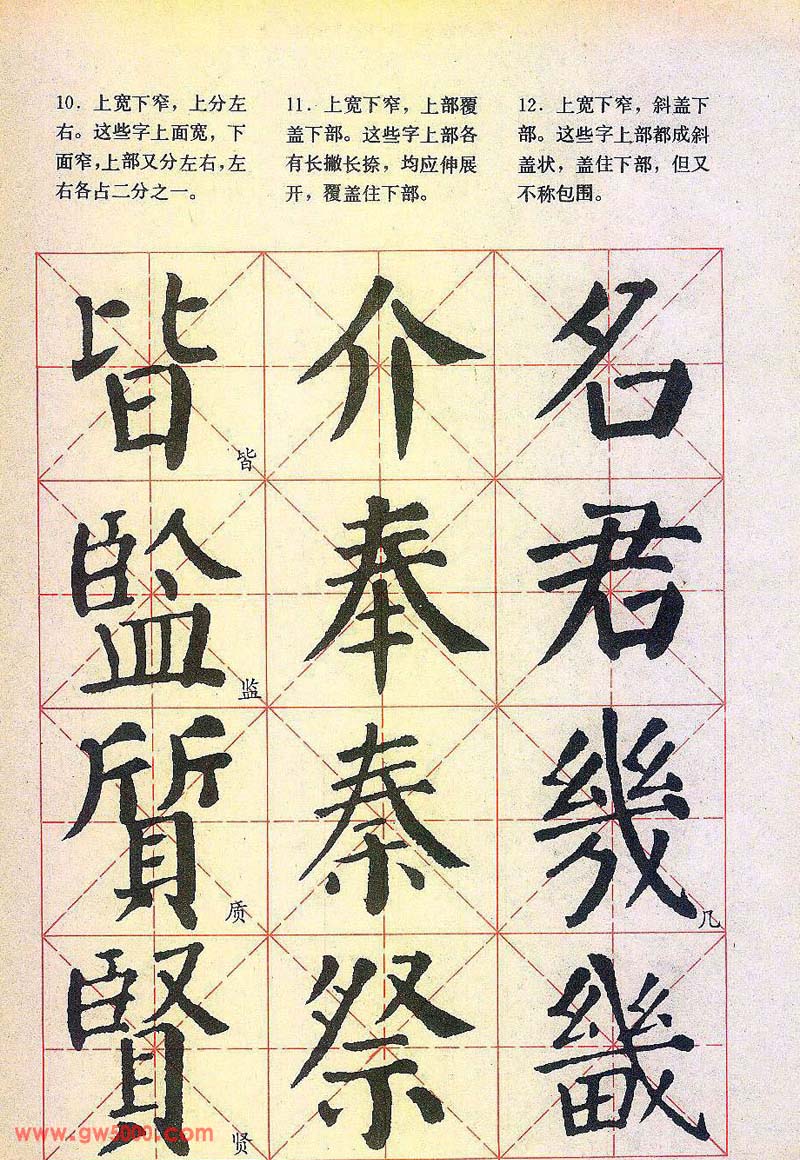 10. 上宽下窄，上分左
右。这些字上面宽，下
面窄，上部又分左右，左
右各占二分之一。
11. 上宽下窄，上部覆
盖下部。这些字上部各
有长撇长捺，均应伸展
开，覆盖住下部。
12. 上宽下窄，斜盖下
部。这些字上部都成斜
盖状，盖住下部，但又
不称包围。
皆 介 名
皆
監 奉 君
监
質 秦 幾
质 几
賢 祭 畿
贤
www.gw5000.com